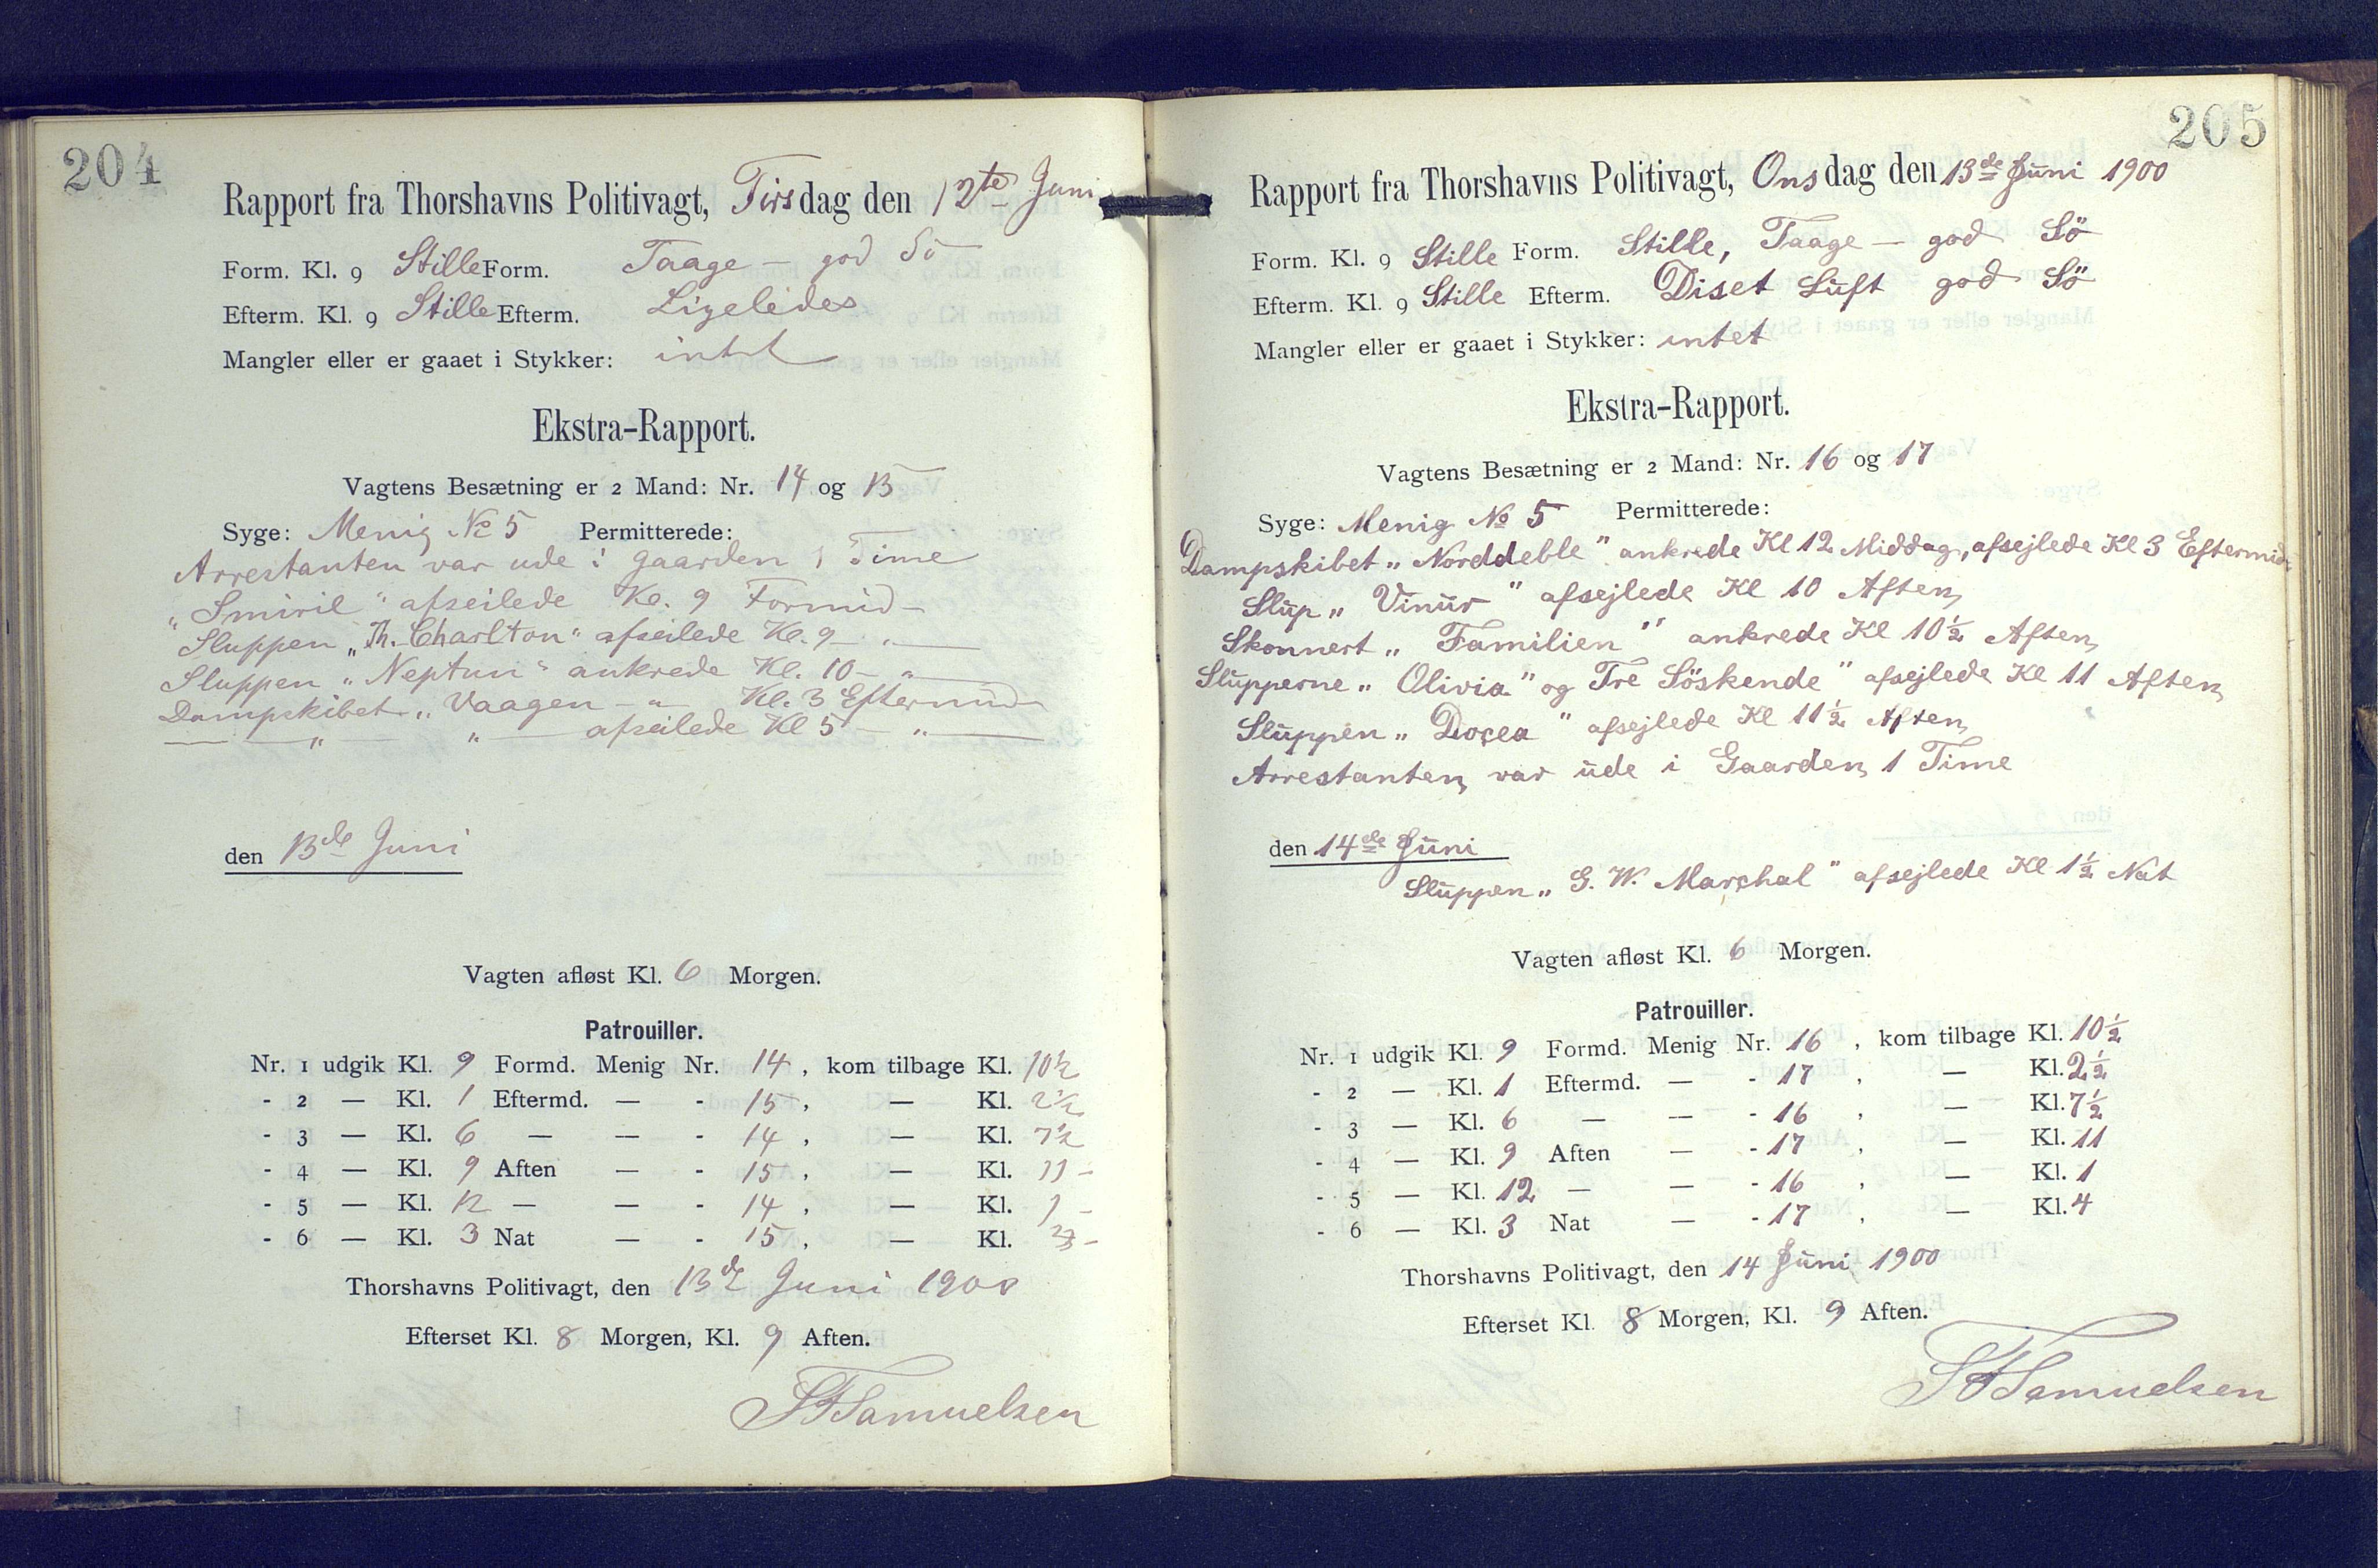 204
Rapport fra Thorshavns Politivagt, Tirsdag den 12te Juni
Form. Kl. 9 Stille Form. Taage – god Sö
Efterm. Kl. 9 Stille Efterm. Ligeledes
Mangler eller er gaaet i Stykker: intet
Ekstra-Rapport.
Vagtens Besætning er 2 Mand: Nr. 14 og 15
Syge: Menig № 5 Permitterede:
Arrestanten var ude i gaarden 1 Time
"Smiril" afseilede Kl. 9 Formid –
Sluppen "Th. Charlton" afseilede Kl. 9 – " –
Sluppen "Neptun" ankrede Kl. 10 – " –
Dampskibet "Vaagen – " – Kl. 3 Eftermid
— " — " — afseilede Kl 5 – " —
den 13de Juni
Vagten afløst Kl. 6 Morgen.
Patrouiller.
Nr. 1 udgik Kl. 9 Formd. Menig Nr. 14, kom tilbage Kl. 10½
- 2 — Kl. 1 Eftermd. — - 15, — Kl. 2½
- 3 — Kl. 6 — — - 14, — Kl. 7½
- 4 — Kl. 9 Aften — - 15, — Kl. 11 –
- 5 — Kl. 12 — — - 14, — Kl. 1 –
- 6 — Kl. 3 Nat — - 15, — Kl.
Thorshavns Politivagt, den 13de Juni 1900
Efterset Kl. 8 Morgen, Kl. 9 Aften.
SFSamuelsen
205
Rapport fra Thorshavns Politivagt, Onsdag den 13de Juni 1900
Form. Kl. 9 Stille Form. Stille, Taage – god Sö
Efterm. Kl. 9 Stille Efterm. Diset Luft god Sö
Mangler eller er gaaet i Stykker: intet
Ekstra-Rapport.
Vagtens Besætning er 2 Mand: Nr. 16 og 17
Syge: Menig № 5 Permitterede:
Dampskibet "Norddeble" ankrede Kl 12 Middag, afsejlede Kl 3 Eftermid
Slup "Vinur" afsejlede Kl 10 Aften
Skonnert "Familien" ankrede Kl 10½ Aften
Slupperne "Olivia" og Tre Söskende" afsejlede Kl 11 Aften
Sluppen "Docea" afsejlede Kl 11½ Aften
Arrestanten var ude i Gaarden 1 Time
den 14de Juni
Sluppen "G. W. Marshal" afsejlede Kl 1½ Nat
Vagten afløst Kl. 6 Morgen.
Patrouiller.
Nr. 1 udgik Kl. 9 Formd. Menig Nr. 16, kom tilbage Kl. 10½
- 2 — Kl. 1 Eftermd. — - 17, — Kl. 2½
- 3 — Kl. 6 — — - 16, — Kl. 7½
- 4 — Kl. 9 Aften — - 17, — Kl. 11
- 5 — Kl. 12 — — - 16, — Kl. 1
- 6 — Kl. 3 Nat — - 17, — Kl. 4
Thorshavns Politivagt, den 14 Juni 1900
Efterset Kl. 8 Morgen, Kl. 9 Aften.
SFSamuelsen